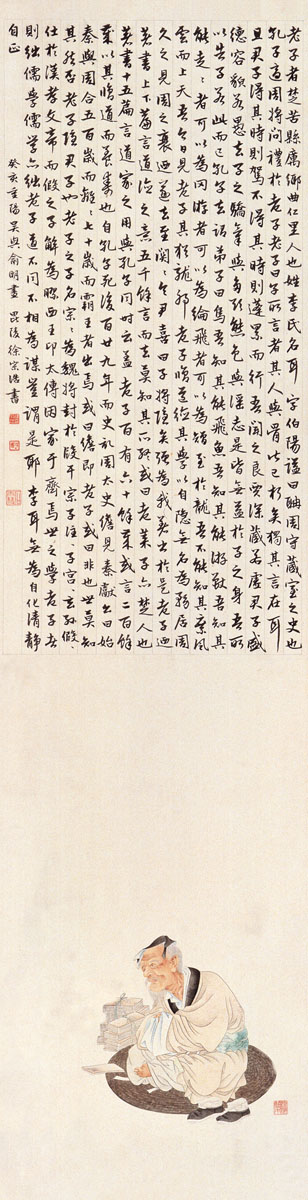 老子者楚苦縣厲鄉曲仁里人也姓李氏名耳字伯陽謚曰聃周守藏室之史也
孔子適周將問禮於老子老子曰子所言者其人與骨皆已朽矣獨其言在耳
且君子得其時則駕不得其時則蓬累而行吾聞之良賈深藏若虛君子盛
德容貌若愚去子之驕氣與多欲態色與淫志是皆無益於子之身吾所
以告子若此而已孔子去謂弟子曰鳥吾知其能飛魚吾知其能游獸吾知其
能走走者可以為罔游者可以為綸飛者可以為矰至於龍吾不能知其乘風
雲而上天吾今日見老子其猶龍邪老子脩道德其學以自隱無名為務居周
久之見周之衰迺遂去至關關令尹喜曰子將隱矣彊為我著書於是老子迺
著書上下篇言道德之意五千餘言而去莫知其所終或曰老萊子亦楚人也
著書十五篇言道家之用與孔子同時云蓋老子百有六十餘歲或言二百餘
歲以其脩道而養壽也自孔子死後百廿九年而史記周太史儋見秦獻公曰始
秦與周合五百歲而離離七十歲而霸王者出焉或曰儋即老子或曰非也世莫知
其然否老子隱君子也老子之子名宗宗為魏將封於段干宗子注注子宮宮玄孫假假
仕於漢孝文帝而假之子解為膠西王卬太傅因家于齊焉世之學老子者
則絀儒學儒學亦絀老子道不同不相為謀豈謂是耶李耳無為自化清靜
自正
癸亥重陽吳興俞明畫 毘陵徐宗浩書